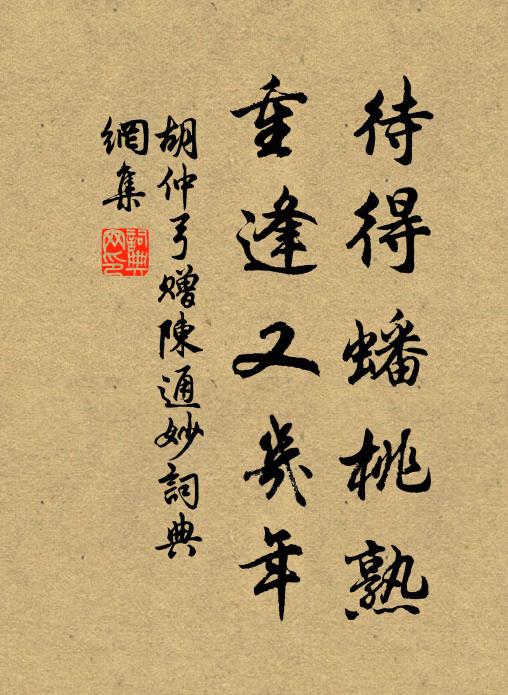 待得蟠桃熟
重逢又幾年
胡仲弓贈陳通妙詞典
網集
詞典
网印